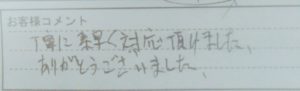 お客様コメント
丁寧に素早く対応頂けました。
ありがとうございました。